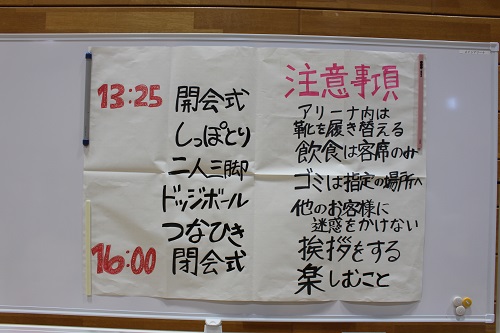 注意事項
アリーナ内は
靴を履き替える
飲食は客席のみ
ゴミは指定の場所へ
他のお客様に
迷惑をかけない
挨拶をする
楽しむこと
13:25 開会式
しっぽとり
二人三脚
ドッジボール
つなひき
16:00 閉会式